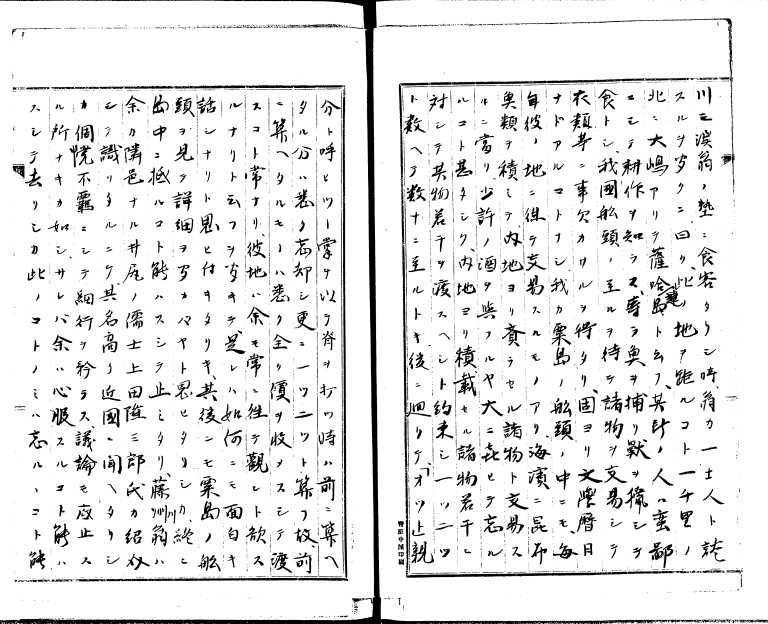 川三渓翁ノ塾ニ食客タリシ時翁カ一士人ト談
スルヲ聞クニ曰ク此地ヲ距ルコト一千里ノ
北ニ大嶋アリテ薩哈嗹島ト云フ其島ノ人ハ蛮鄙
ニシテ耕作ヲ知ラス専ラ魚ヲ捕リ獣ヲ猟シテ
食トシ我国舩頭ノ至ルヲ待テ諸物ヲ交易シテ
衣類等ニ事欠カサルヲ得タリ固ヨリ文牒暦日
ナドアルコトナシ我カ粟島ノ舩頭ノ中ニモ毎
年彼ノ地ニ往テ交易スルモノアリ海濱ニ昆布
魚類ヲ積ミテ内地ヨリ賚ラセル諸物ト交易ス
ルニ當リ少許ノ酒ヲ與フルヤ大ニ喜ヒテ忘ル
ルコト甚タシク内地ヨリ積載セル諸物若干ニ
対シテ其物若干ヲ渡スヘシト約束シ一ツ二ツ
ト数ヘテ数十ニ至ルトキ後ニ廻リテ「オツ止親
分ト呼ヒツヽ掌ヲ以テ脊ヲ打ツ時ハ前ニ算ヘ
タル分ハ悉ク忘却シ更ニ一ツ二ツト算フ故前
ニ算ヘタルモノハ悉ク全ク價ヲ收メスシテ渡
スコト常ナリ彼地ハ余モ常ニ往テ觀ント欲ス
ルナリト云フヲ聞キテ是レハ如何ニモ面白キ
話シナリト思ヒ付キタリキ其後ニモ粟島ノ舩
頭ヲ見テ詳細ヲ聞カハヤト思ヒタリシカ終ニ
島中ニ抵ルコト能ハスシテ止ミタリ藤川翁ハ
余カ隣邑ナル井尻ノ儒士上田隆三郎氏カ紹介
シテ識リタルニテ其名高ク近國ニ聞ヘタリシ
カ倜儻不羈ニシテ細行ヲ矜ラス議論モ底止ス
ル所ナキカ如シサレバ余ハ心服スルコト能ハ
スシテ去リシカ此ノコトノミハ忘ルヽコト能